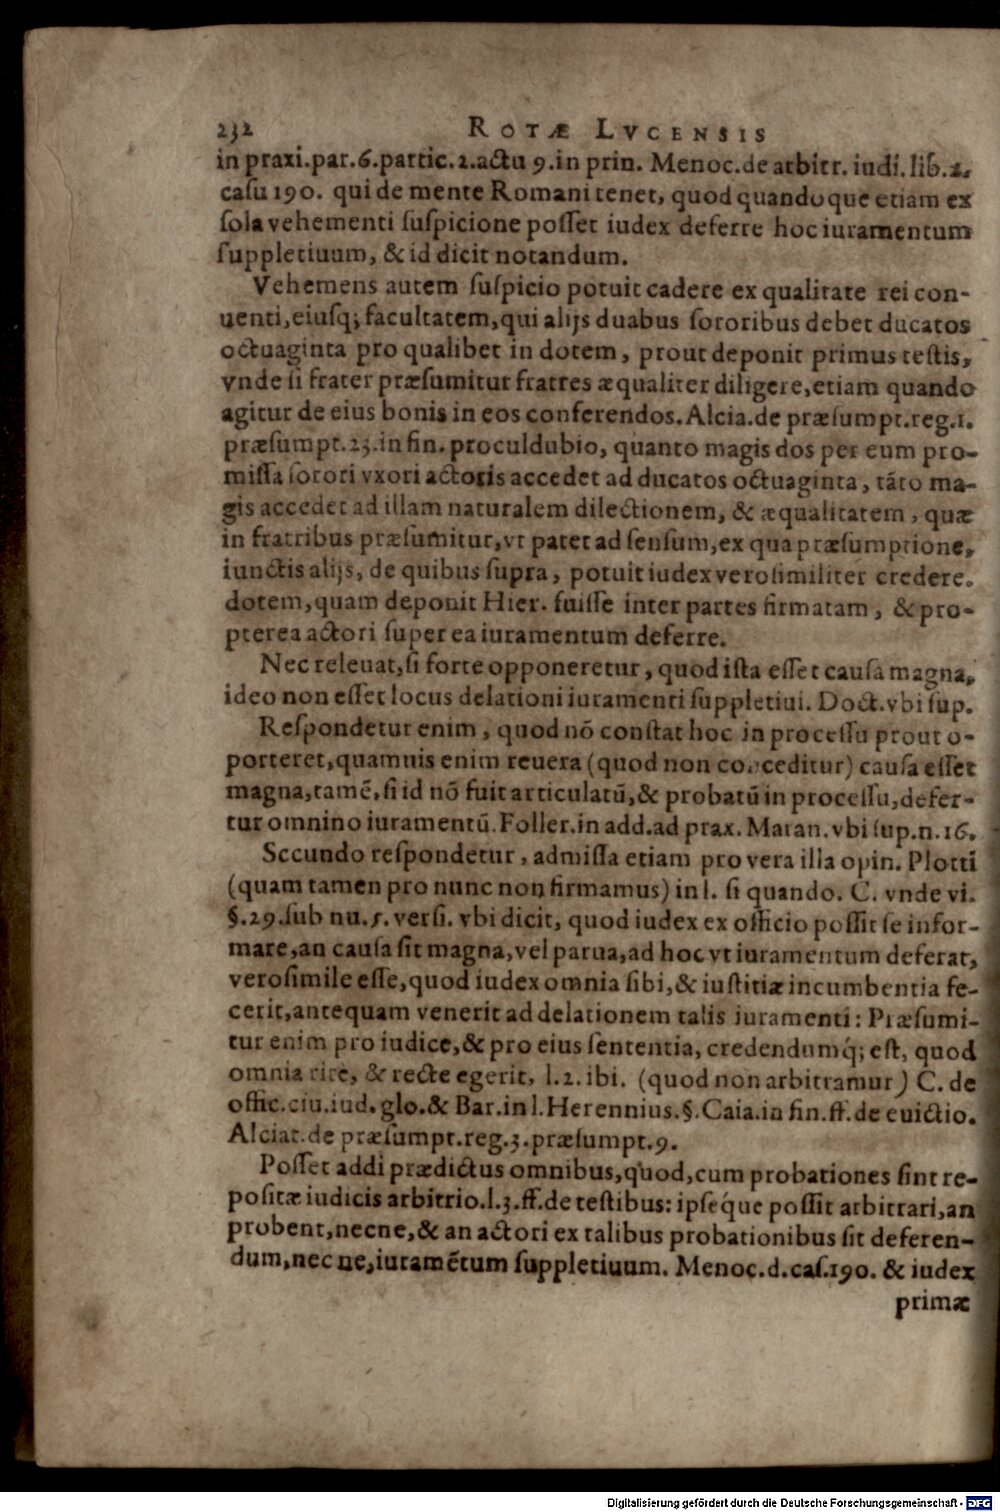 232 ROTÆ LVCENSIS
in praxi.par.6.partic.2.actu 9.in prin. Menoc.de arbitr. iudi. lib.2.
casu 190. qui de mente Romani tenet, quod quandoque etiam ex
sola vehementi suspicione posset iudex deferre hoc iuramentum
suppletiuum, & id dicit notandum.
Vehemens autem suspicio potuit cadere ex qualitate rei con-
uenti, eiusq; facultatem, qui alijs duabus sororibus debet ducatos
octuaginta pro qualibet in dotem, prout deponit primus testis,
vnde si frater præsumitur fratres æqualiter diligere, etiam quando
agitur de eius bonis in eos conferendos. Alcia.de præsumpt.reg.1.
præsumpt.23.in fin. proculdubio, quanto magis dos per eum pro-
missa sorori vxori actoris accedet ad ducatos octuaginta, tãto ma-
gis accedet ad illam naturalem dilectionem, & æqualitatem, quæ
in fratribus præsumitur, vt patet ad sensum, ex qua præsumptione,
iunctis alijs, de quibus supra, potuit iudex verosimiliter credere.
dotem, quam deponit Hier. fuisse inter partes firmatam, & pro-
pterea actori super ea iuramentum deferre.
Nec releuat, si forte opponeretur, quod ista esset causa magna,
ideo non esset locus delationi iuramenti suppletiui. Doct.vbi sup.
Respondetur enim, quod nõ constat hoc in processu prout o-
porteret, quamuis enim reuera (quod non conceditur) causa esset
magna, tamẽ, si id nõ fuit articulatũ, & probatũ in processu, defer-
tur omnino iuramentũ. Foller.in add.ad prax. Maran.vbi sup.n.16.
Secundo respondetur, admissa etiam pro vera illa opin. Plotti
(quam tamen pro nunc non firmamus) in l. si quando. C. vnde vi.
§.29.sub nu.5. versi. vbi dicit, quod iudex ex officio possit se infor-
mare, an causa sit magna, vel parua, ad hoc vt iuramentum deferat,
verosimile esse, quod iudex omnia sibi, & iustitiæ incumbentia fe-
cerit, antequam venerit ad delationem talis iuramenti: Præsumi-
tur enim pro iudice, & pro eius sententia, credendumq́; est, quod
omnia rite, & recte egerit, l.2. ibi. (quod non arbitramur) C. de
offic.ciu.iud. glo.& Bar.in l.Herennius.§.Caia.in fin.ff.de euictio.
Alciat.de præsumpt.reg.3.præsumpt.9.
Posset addi prædictus omnibus, quod, cum probationes sint re-
positæ iudicis arbitrio.l.3.ff.de testibus: ipseq́ue possit arbitrari, an
probent, necne, & an actori ex talibus probationibus sit deferen-
dum, nec ne, iuramẽtum suppletiuum. Menoc.d.cas.190. & iudex
primæ
Digitalisierung gefördert durch die Deutsche Forschungsgemeinschaft - DFG